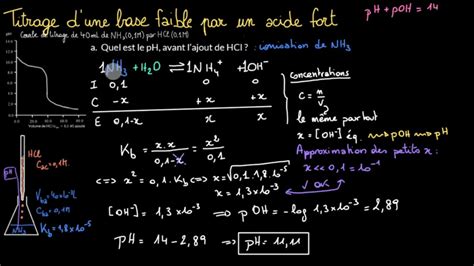 Titrage d'une base faible par un acide fort
pH + pOH = 14
pH
Courbe de titrage de 40 ml de NH₃ (0,1M) par HCl (0.1M)
a. Quel est le pH, avant l'ajout de HCl ? : ionisation de NH₃
1NH₃ + H₂O ⇌ 1NH₄⁺ + 1OH⁻
I 0,1 / /
C -x +x +x
E 0,1-x x x
Concentrations
C = n/V
le même partout
x = [OH⁻] éq. ⇝ pOH ⇝ pH
Kb = x.x/0,1-x = x²/0,1
Approximation des petits x :
x << 0,1 = 10⁻¹
✓ OK
<=> x² = 0,1.Kb <=> x = √0,1.1,8.10⁻⁵
x = 1,3 x 10⁻³
[OH⁻] = 1,3 x 10⁻³ => pOH = -log 1,3 x 10⁻³ = 2,89
pH = 14 - 2,89 => pH = 11,11
HCl
Cac = 0,1M
pH
Cb = 0,1M
NH₃
Kb = 1,8 x 10⁻⁵